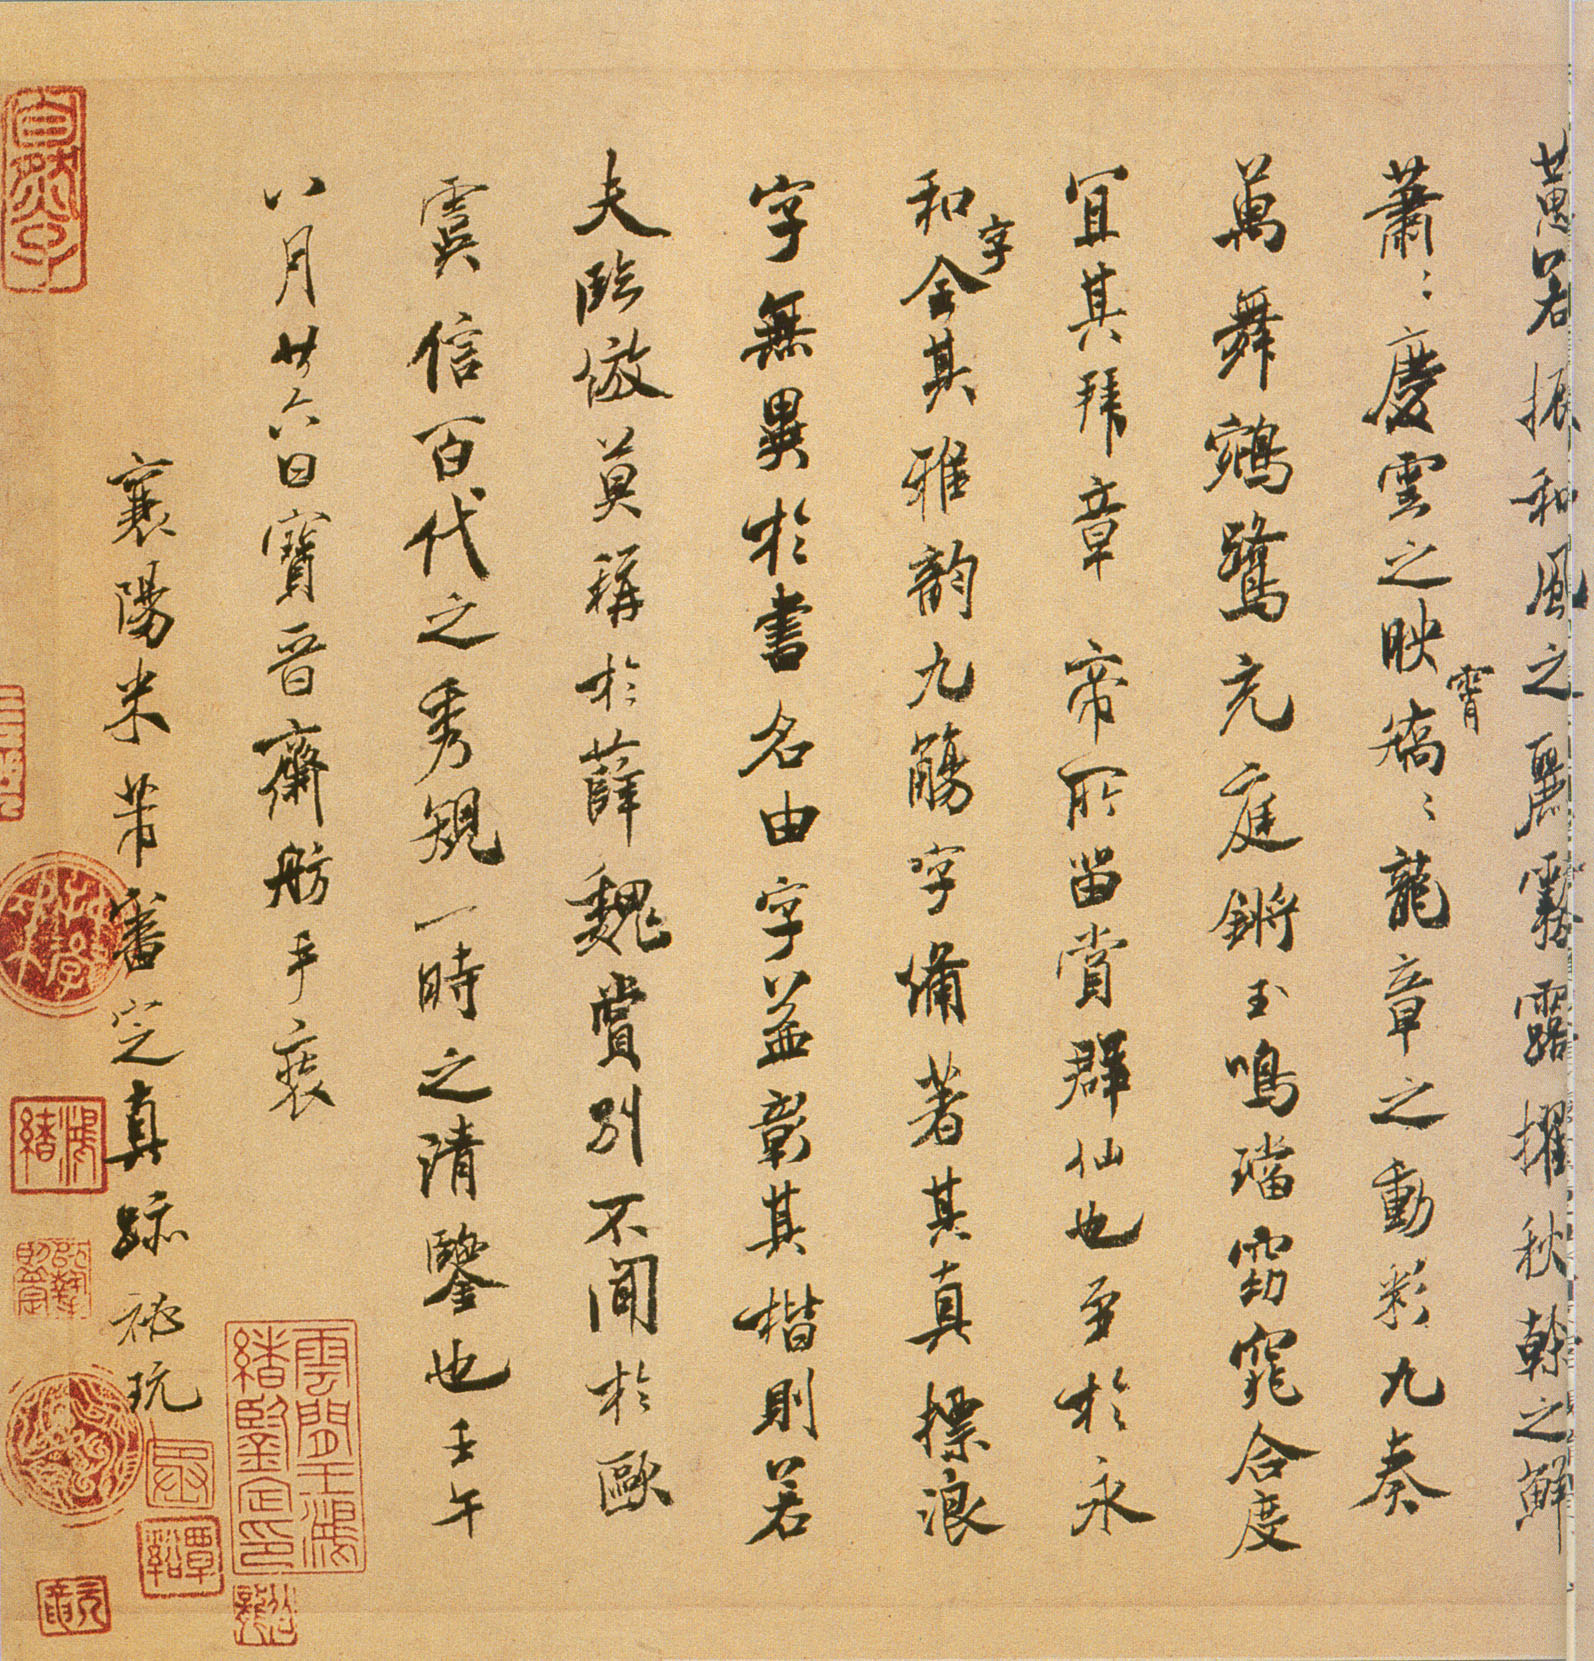 蕙若振和風之麗霧露擢秋幹之鮮
蕭〻慶雲之映霄矯〻龍章之動彩九奏
萬舞鵷鷺充庭鏘玉鳴璫窈窕合度
宜其拜章帝所留賞群仙也至於永
和字全其雅韵九觴字備著其真標浪
字無異於書名由字益彰其楷則若
夫臨倣莫稱於薛魏賞別不聞於歐
虞信百代之秀規一時之清鑒也壬午
八月廿六日寶晉齋舫手裝
襄陽米芾審定真跡秘玩
雲間王鴻緒鑒定印
鴻緒